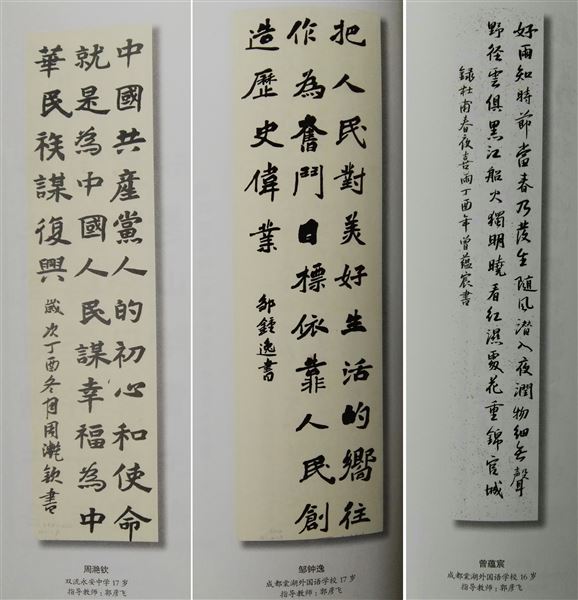 中國共產黨人的初心和使命
就是為中國人民謀幸福為中
華民族謀復興
歲次丁酉冬月周灔欽書
周滟钦
双流永安中学 17 岁
指导教师：郭彦飞
把人民對美好生活的嚮往
作為奮鬥目標依靠人民創
造歷史偉業
鄒鍾逸書
邹钟逸
成都棠湖外国语学校 17 岁
指导教师：郭彦飞
好雨知時節當春乃發生随風潛入夜潤物細無聲
野径雲俱黑江船火獨明曉看紅濕處花重錦官城
録杜甫春夜喜雨丁酉年曾蘊宸書
曾蕴宸
成都棠湖外国语学校 16 岁
指导教师：郭彦飞